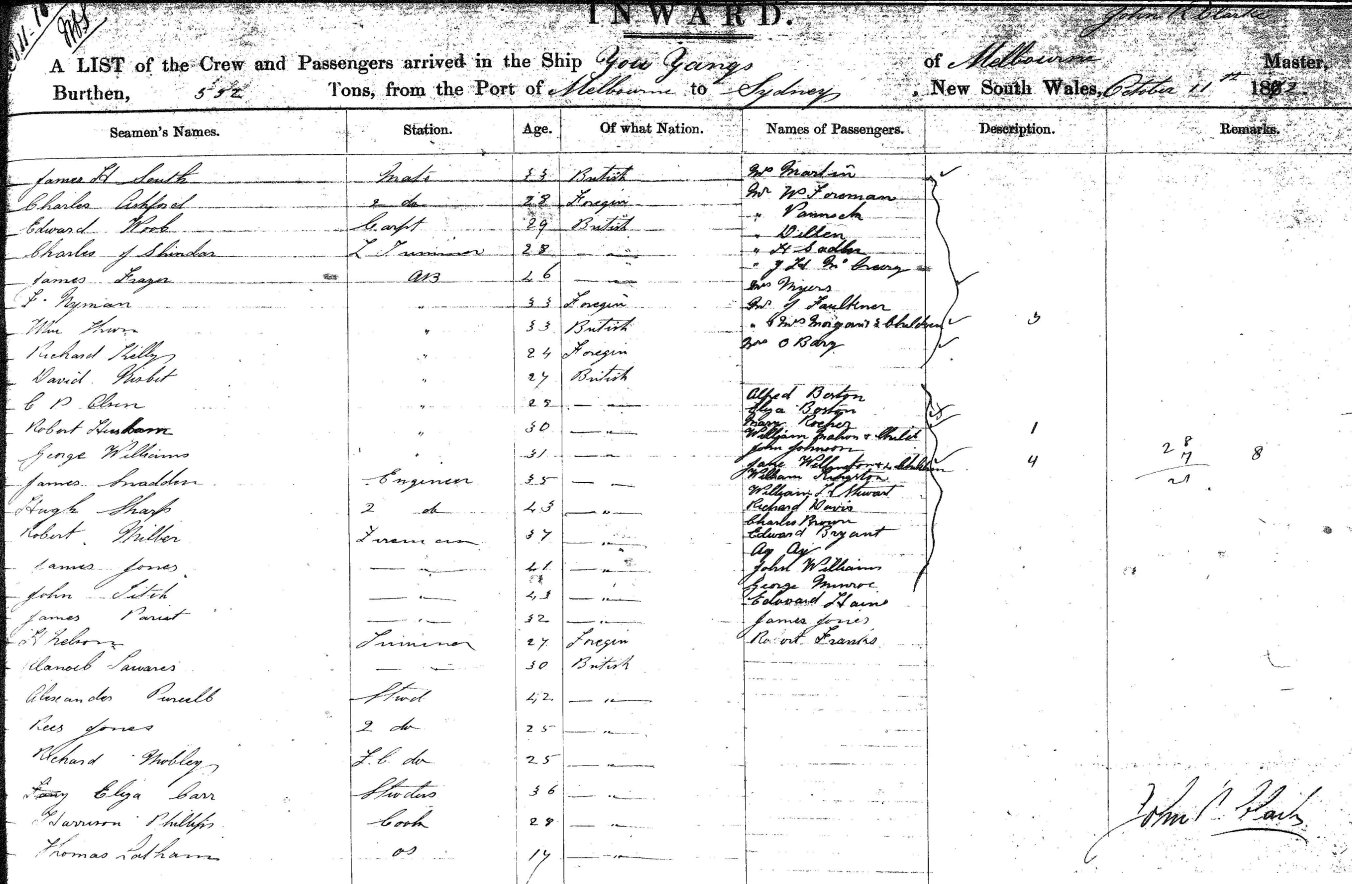 INWARD.
John P. Clarke
A LIST of the Crew and Passengers arrived in the Ship You Yangs of Melbourne Master,
Burthen, 552 Tons, from the Port of Melbourne to Sydney, New South Wales, October 11th 1882.
Seamen's Names. Station. Age. Of what Nation. Names of Passengers. Description. Remarks.
James H South Mate 33 British Mrs Martin
Charles Ashford 2 do 28 Foregin Mr Wm Foreman
Edward Wood Carpt 29 British " Pannock
" Dillen
Charles J 28 — " — " H Sadler
James Frazer AB 46 — " " J H McCreery
Mrs Myers
F. Nyman " 33 Foregin Mr G Faulkner
Wm " 33 British " & Mrs Morgan & 3 Children 3
Richard Kelly " 24 Foregin Mrs O Barg
David Nisbet " 27 British
C P Olsen " 28 — " Alfred Boston
Eliza Boston
Robert " 30 — " Mary Rocher
William Mahon & Child 1
George Williams " 31 — " John Johnson 28
Jane Wellington & 4 Children 4 7 8
James Snadden Engineer 35 — " William Kingston 21
William H Stewart
Hugh Sharp 2 do 43 — " Richard Davis
Charles Brown
Robert Miller Fireman 37 — " Edward Bryant
Ay Ay
James Jones — " — 41 — " John Williams
George Munroe
John Fitch — " — 43 — " Edward Ham
James — " — 32 — " James Jones
F Nelson Trimmer 27 Foregin Robert Francis
Manoel Tavares — — 30 British
Alexander Purcell Stwd 42 — "
Rees Jones 2 do 25 — "
Richard Mobley F.C. do 25 — "
Eliza Carr Stwdess 36 — "
Harrison Phillips Cook 28 — " John P. Clark
Thomas Latham OS 17 — "